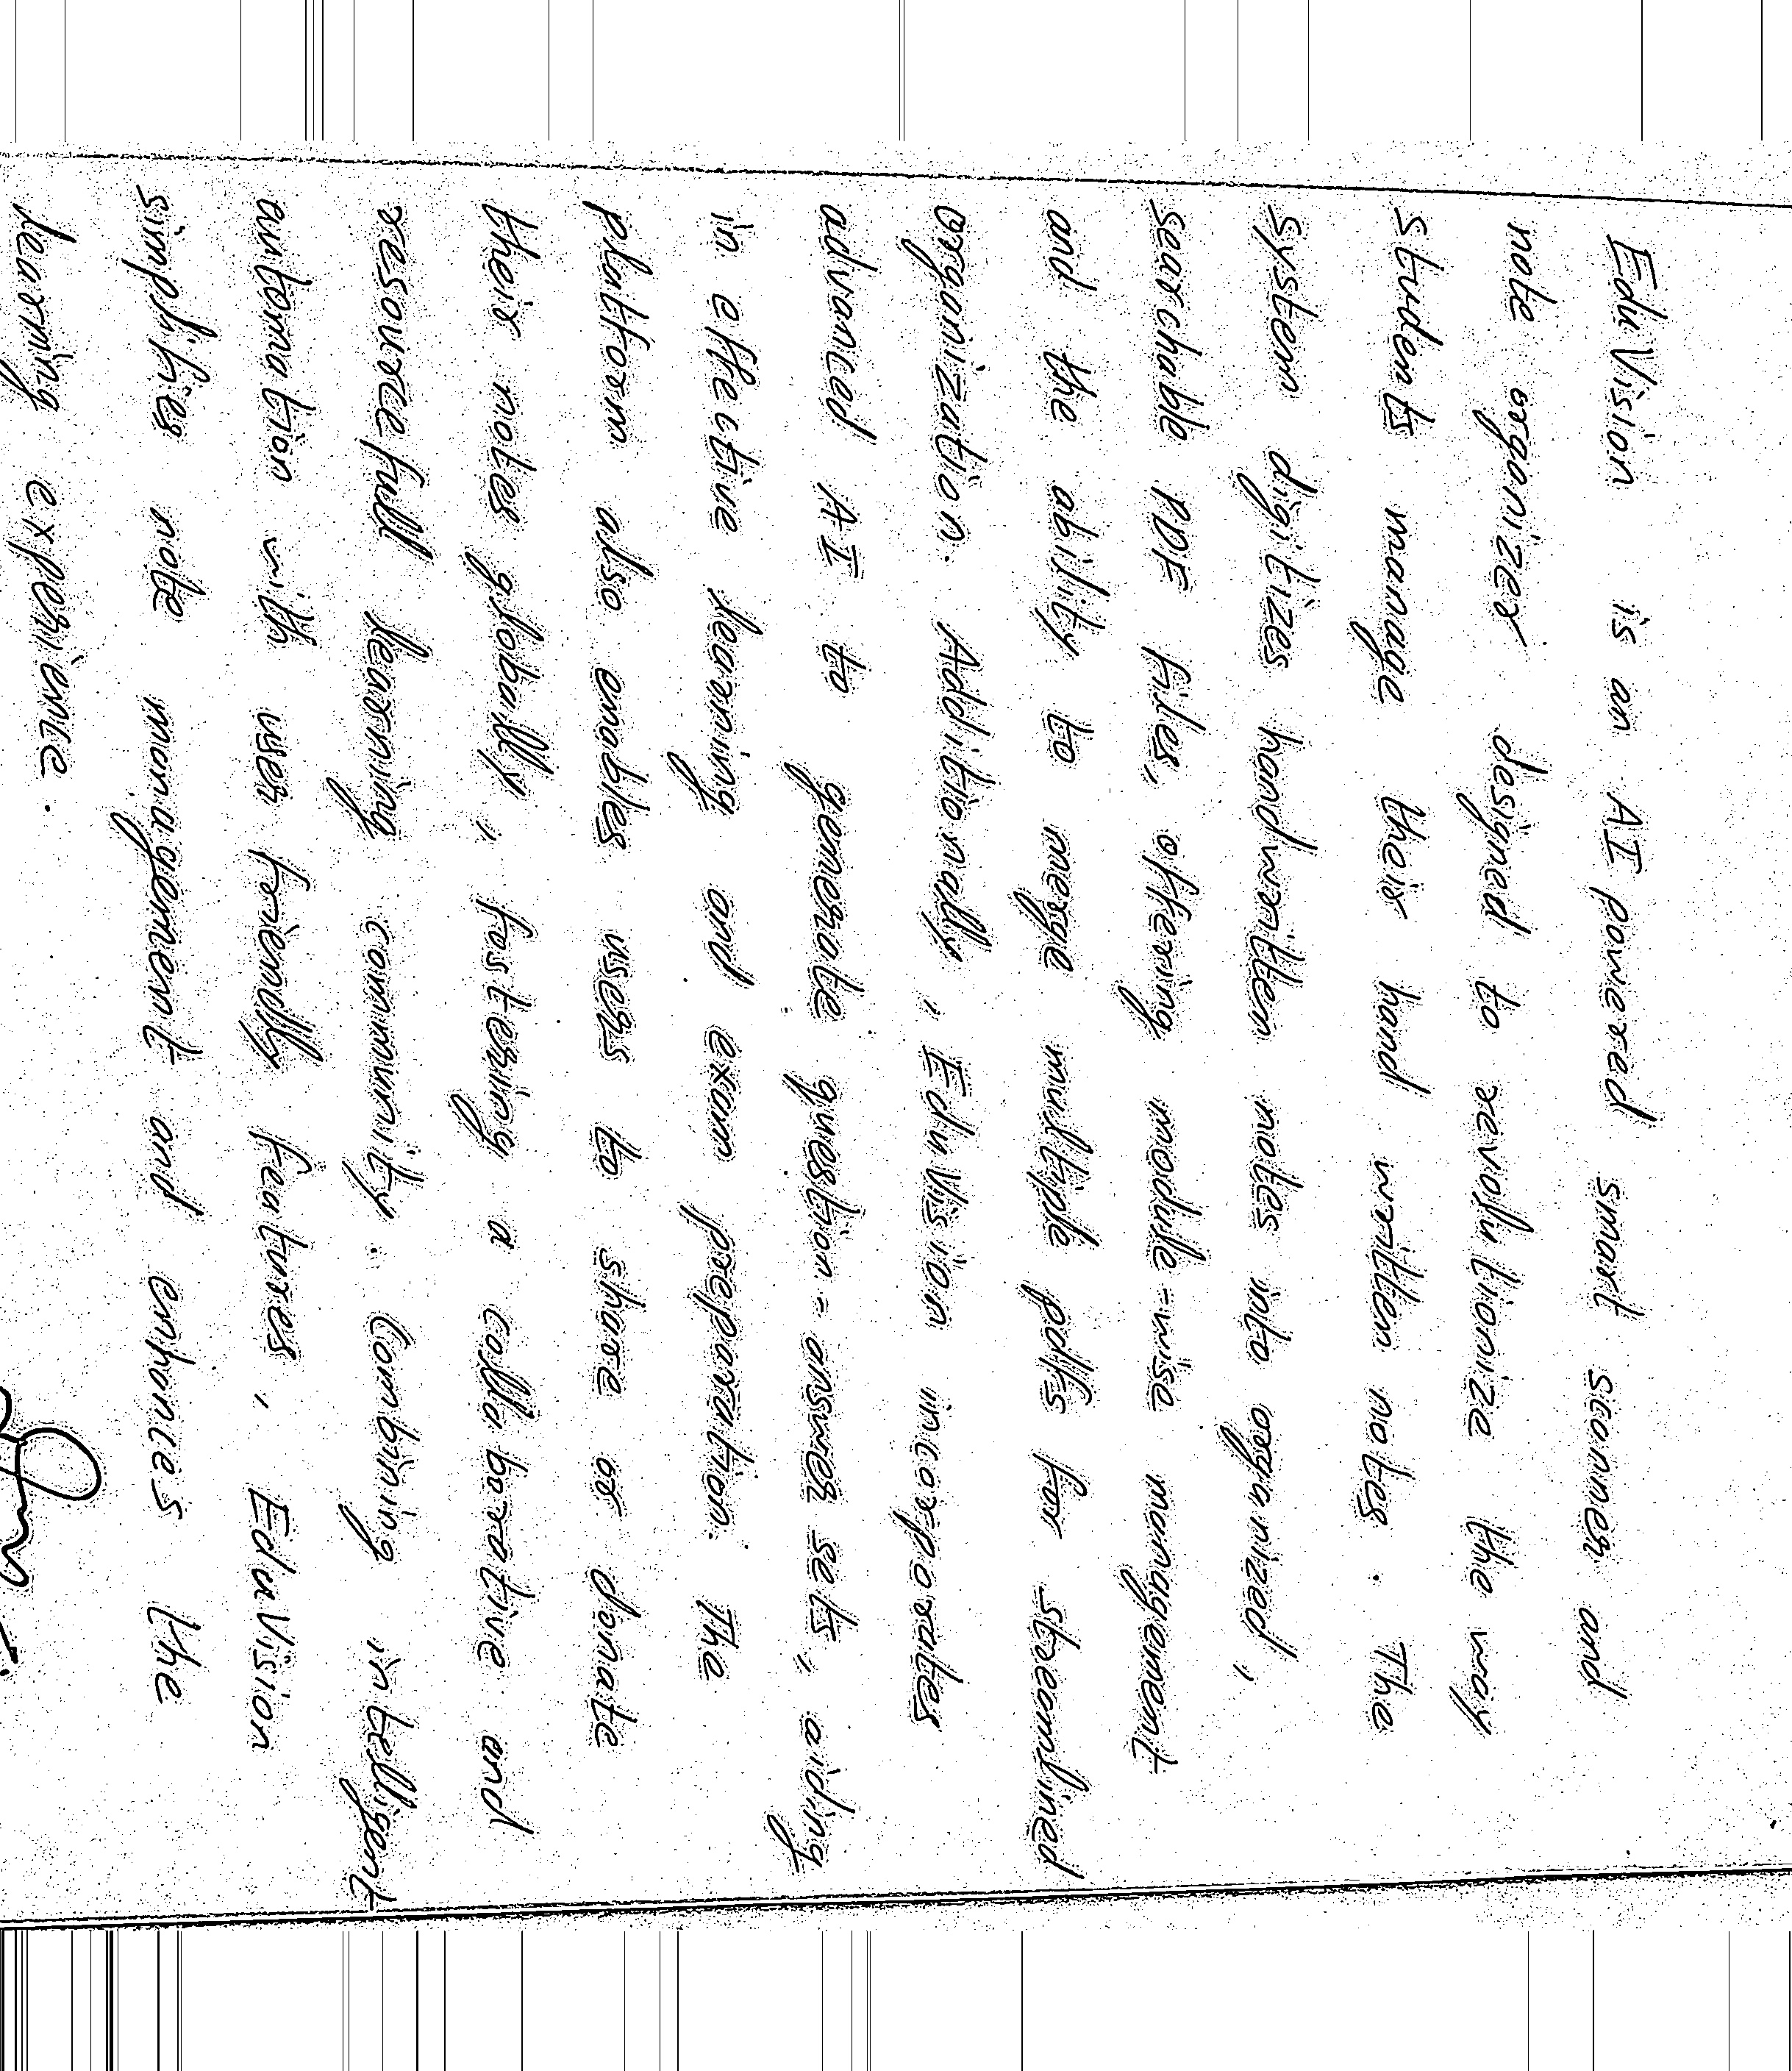 EduVision is an AI powered smart scanner and
note organizer designed to revolutionize the way
students manage their hand written notes. The
system digitizes handwritten notes into organized,
searchable PDF files, offering module-wise management
and the ability to merge multiple pdfs for streamlined
organization. Additionally, EduVision incorporates
advanced AI to generate question-answer sets, aiding
in effective learning and exam preparation. The
platform also enables users to share or donate
their notes globally, fostering a collaborative and
resourcefull learning community. Combining intelligent
automation with user friendly features, EduVision
simplifies note management and enhances the
learning experience.